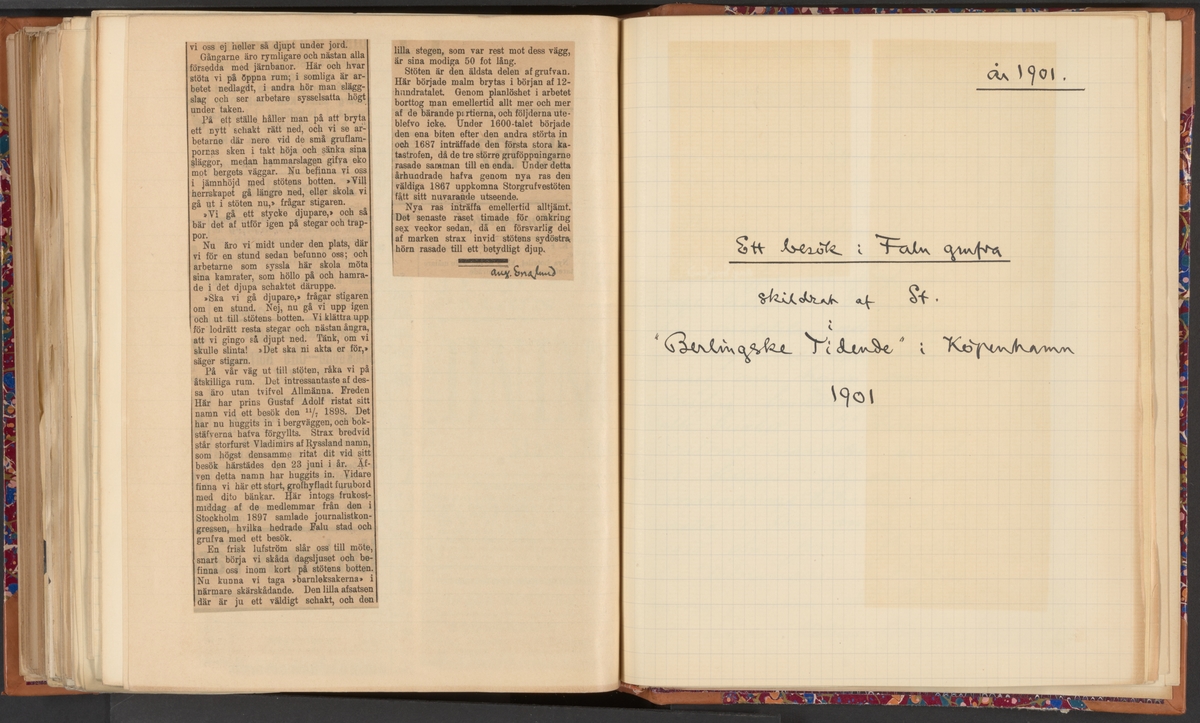 vi oss ej heller så djupt under jord.
Gångarne äro rymligare och nästan alla
försedda med järnbanor. Här och hvar
stöta vi på öppna rum; i somliga är ar-
betet nedlagdt, i andra hör man slägg-
slag och ser arbetare sysselsatta högt
under taken.
På ett ställe håller man på att bryta
ett nytt schakt rätt ned, och vi se ar-
betarne där nere vid de små gruflam-
pornas sken i takt höja och sänka sina
släggor, medan hammarslagen gifva eko
mot bergets väggar. Nu befinna vi oss
i jämnhöjd med stötens botten. »Vill
herrskapet gå längre ned, eller skola vi
gå ut i stöten nu,» frågar stigaren.
»Vi gå ett stycke djupare,» och så
bär det af utför igen på stegar och trap-
por.
Nu äro vi midt under den plats, där
vi för en stund sedan befunno oss; och
arbetarne som syssla här skola möta
sina kamrater, som höllo på och hamra-
de i det djupa schaktet däruppe.
»Ska vi gå djupare,» frågar stigaren
om en stund. Nej, nu gå vi upp igen
och ut till stötens botten. Vi klättra upp
för lodrätt resta stegar och nästan ångra,
att vi gingo så djupt ned. Tänk, om vi
skulle slinta! »Det ska ni akta er för,»
säger stigarn.
På vår väg ut till stöten, råka vi på
åtskilliga rum. Det intressantaste af des-
sa äro utan tvifvel Allmänna. Freden
Här har prins Gustaf Adolf ristat sitt
namn vid ett besök den 11/7 1898. Det
har nu huggits in i bergväggen, och bok-
stäfverna hafva förgyllts. Strax bredvid
står storfurst Vladimirs af Ryssland namn,
som högst densamme ritat dit vid sitt
besök härstädes den 23 juni i år. Äf-
ven detta namn har huggits in. Vidare
finna vi här ett stort, grofhyfladt furubord
med dito bänkar. Här intogs frukost-
middag af de medlemmar från den i
Stockholm 1897 samlade journalistkon-
gressen, hvilka hedrade Falu stad och
grufva med ett besök.
En frisk lufström slår oss till möte,
snart börja vi skåda dagsljuset och be-
finna oss inom kort på stötens botten.
Nu kunna vi taga »barnleksakerna» i
närmare skärskådande. Den lilla afsatsen
där är ju ett väldigt schakt, och den
lilla stegen, som var rest mot dess vägg,
är sina modiga 50 fot lång.
Stöten är den äldsta delen af grufvan.
Här började malm brytas i början af 12-
hundratalet. Genom planlöshet i arbetet
borttog man emellertid allt mer och mer
af de bärande partierna, och följderna ute-
blefvo icke. Under 1600-talet började
den ena biten efter den andra störta in
och 1687 inträffade den första stora ka-
tastrofen, då de tre större gruföppningarne
rasade samman till en enda. Under detta
århundrade hafva genom nya ras den
väldiga 1867 uppkomna Storgrufvestöten
fått sitt nuvarande utseende.
Nya ras inträffa emellertid alltjämt.
Det senaste raset timade för omkring
sex veckor sedan, då en försvarlig del
af marken strax invid stötens sydöstra
hörn rasade till ett betydligt djup.
aug. Englund
år 1901.
Ett besök i Falu grufva
skildrat af St.
i
"Berlingske Tidende" i Köpenhamn
1901